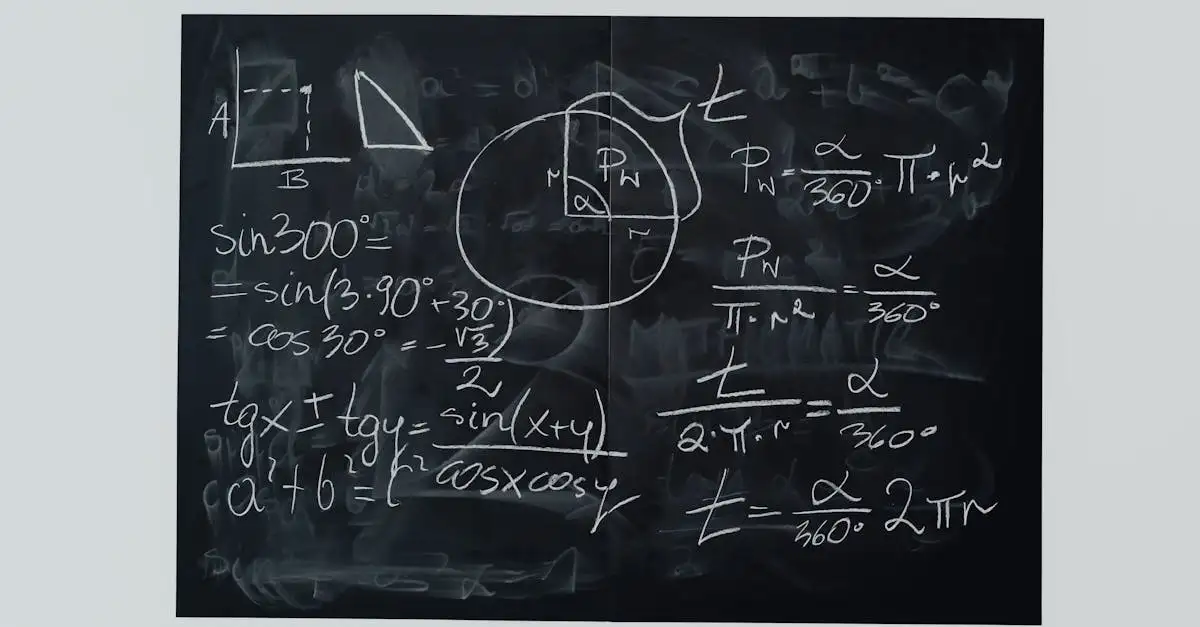 A
B
sin300°=
=sin(3·90°+30°)
= cos30° = -√3/2
tgx ± tgy = sin(x+y)/cosxcosy
a²+b²=c²
t
r
P_w
α
r
P_w = α/360° π·r²
P_w/π·r² = α/360°
t/2·π·r = α/360°
t = α/360° 2πr